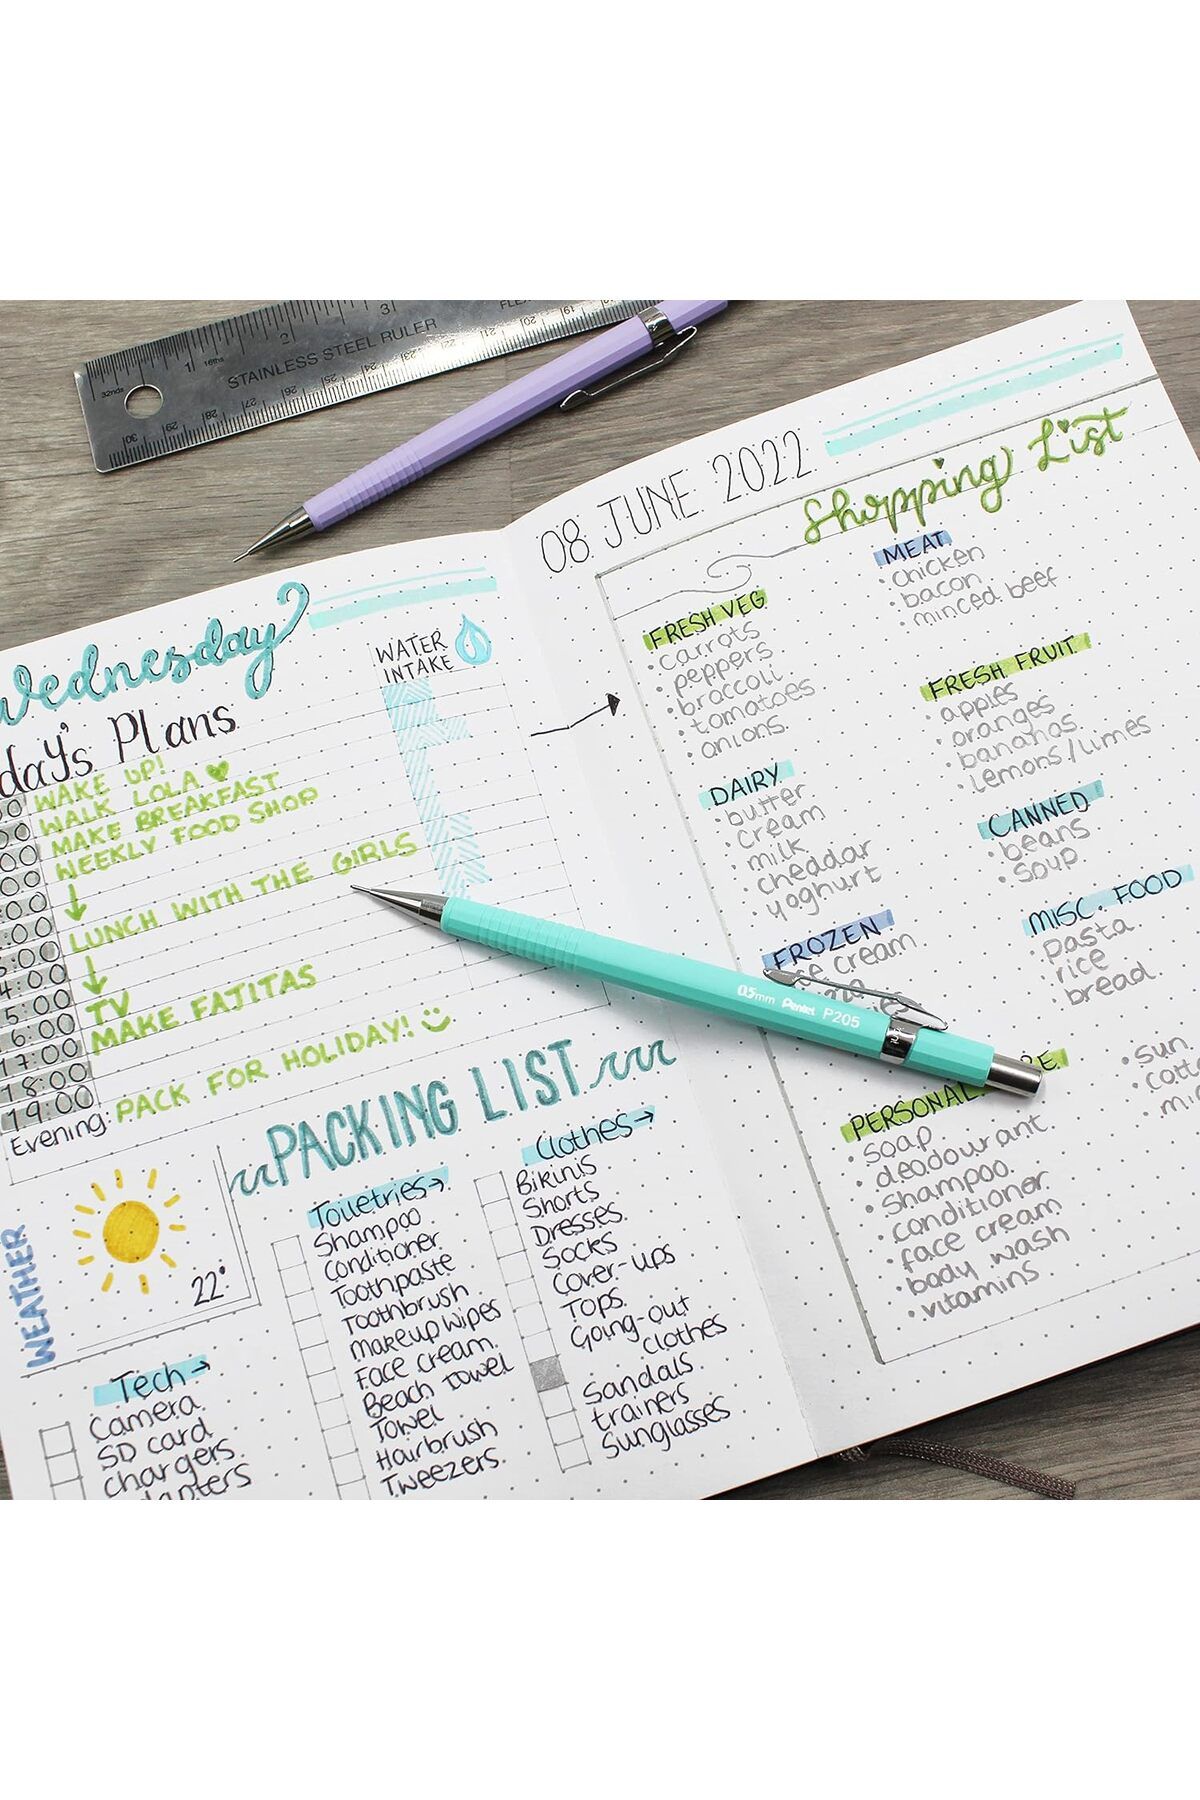 STAINLESS STEEL RULER
32nds
16ths
1
2
3
30
29
28
27
26
25
24
23
22
21
20
19
Wednesday
day's Plans
WAKE UP!
WALK LOLA
MAKE BREAKFAST
WEEKLY FOOD SHOP
LUNCH WITH THE GIRLS
TV
MAKE FAJITAS
16:00
17:00
18:00
19:00
Evening: PACK FOR HOLIDAY!
WATER
INTAKE
WEATHER
22°
PACKING LIST
Tech→
Camera
SD card
chargers
Toiletries→
Shampoo
Conditioner
Toothpaste
Toothbrush
Makeup Wipes
Face cream
Beach Towel
Towel
Hairbrush
Tweezers
Clothes→
Bikinis
Shorts
Dresses
Socks
Cover-ups
Tops
Going-out
clothes
Sandals
trainers
Sunglasses
08 JUNE 2022
Shopping List
FRESH VEG
• carrots
• peppers
• broccoli
• tomatoes
• onions
DAIRY
• butter
• cream
• milk
• cheadar
• yoghurt
FROZEN
cream
PERSONAL
• soap
• deodourant
• shampoo
• conditioner
• face cream
• body wash
• vitamins
MEAT
• chicken
• bacon
• minced beef
FRESH FRUIT
• apples
• oranges
• bananas
• lemons/limes
CANNED
• beans
• soup
MISC. FOOD
• pasta
• rice
• bread
• sun
0.5mm Pentel P205